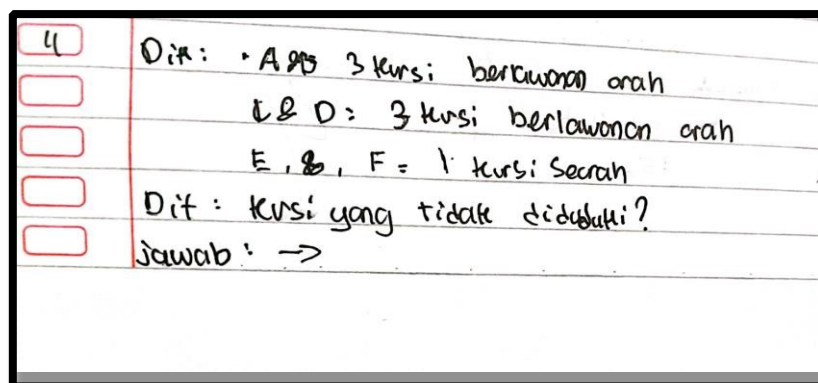 4
Dik : • A & B 3 kursi berlawanan arah
C & D : 3 kursi berlawanan arah
E , & , F = 1 kursi Searah
Dit : kursi yang tidak diduduki?
jawab : →